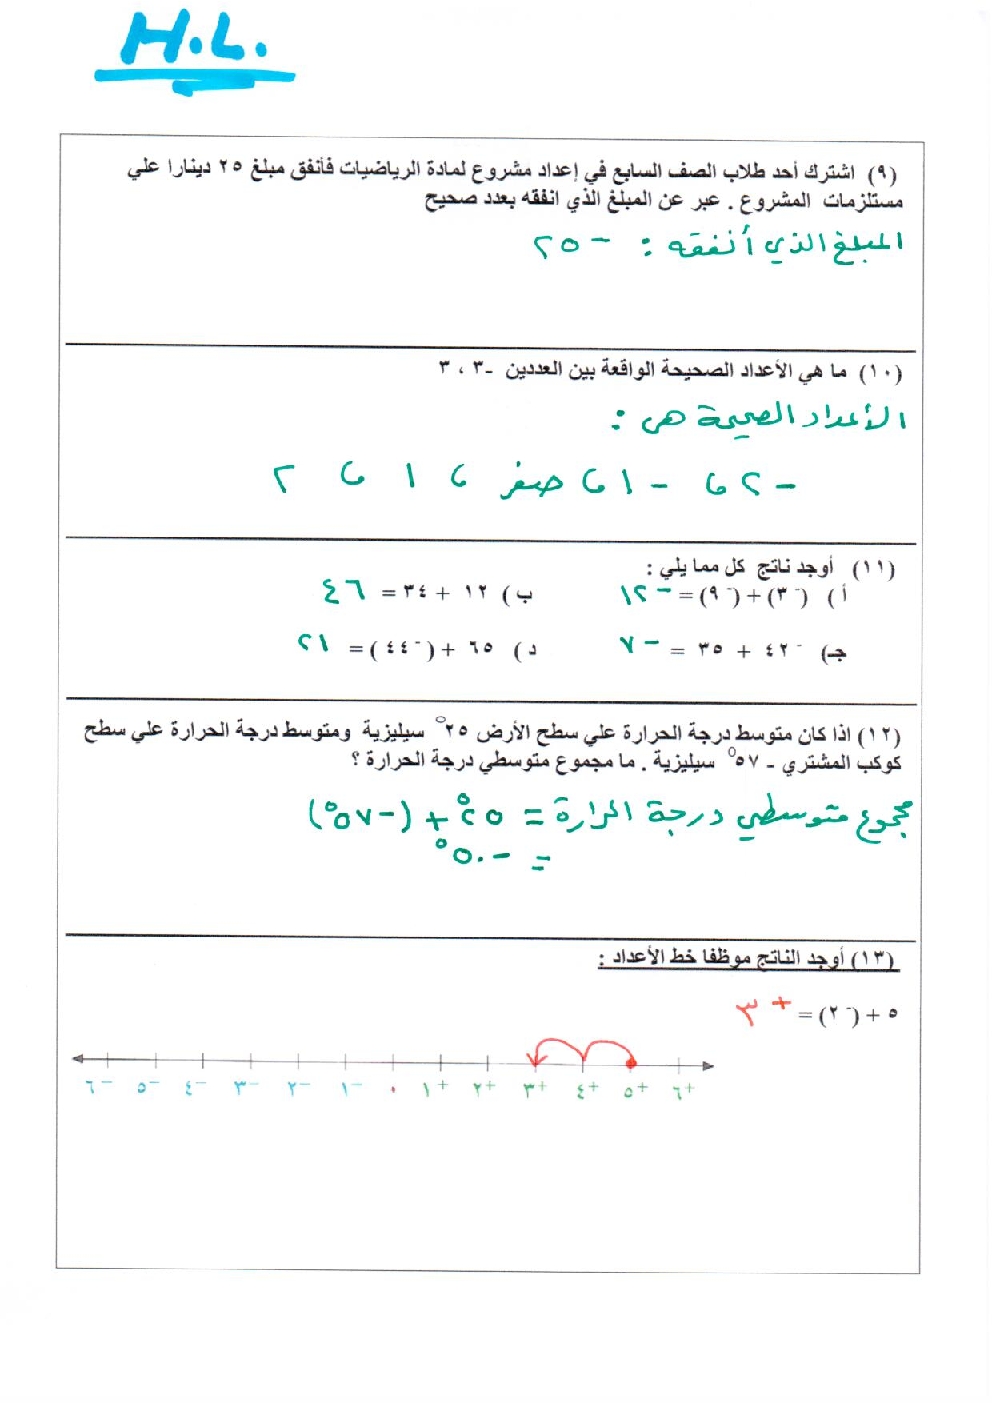 H.L.
(٩) اشترك أحد طلاب الصف السابع في إعداد مشروع لمادة الرياضيات فأنفق مبلغ ٢٥ دينارا علي
مستلزمات المشروع . عبر عن المبلغ الذي انفقه بعدد صحيح
المبلغ الذي أنفقه : − ٢٥
(١٠) ما هي الأعداد الصحيحة الواقعة بين العددين -٣ ، ٣
الأعداد الصحيحة هي :
−٢ ، −١ ، صفر ، ١ ، ٢
(١١) أوجد ناتج كل مما يلي :
أ ) (⁻٣) + (⁻٩) = −١٢ ب ) ١٢ + ٣٤ = ٤٦
جـ) ⁻٤٢ + ٣٥ = −٧ د ) ٦٥ + (⁻٤٤) = ٢١
(١٢) اذا كان متوسط درجة الحرارة علي سطح الأرض ٢٥° سيليزية ومتوسط درجة الحرارة علي سطح
كوكب المشتري - ٥٧° سيليزية . ما مجموع متوسطي درجة الحرارة ؟
مجموع متوسطي درجة الحرارة = ٢٥° + (−٥٧°)
= −٥٠°
(١٣) أوجد الناتج موظفا خط الأعداد :
٥ + (⁻٢) = +٣
٦− ٥− ٤− ٣− ٢− ١− ٠ ١+ ٢+ ٣+ ٤+ ٥+ ٦+